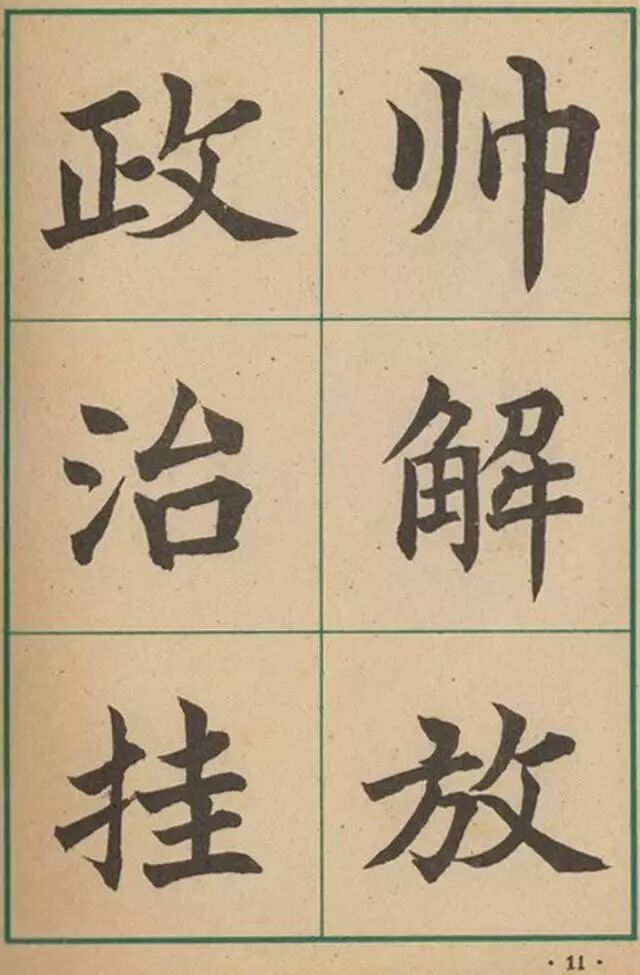 政治挂
帅解放
·11·